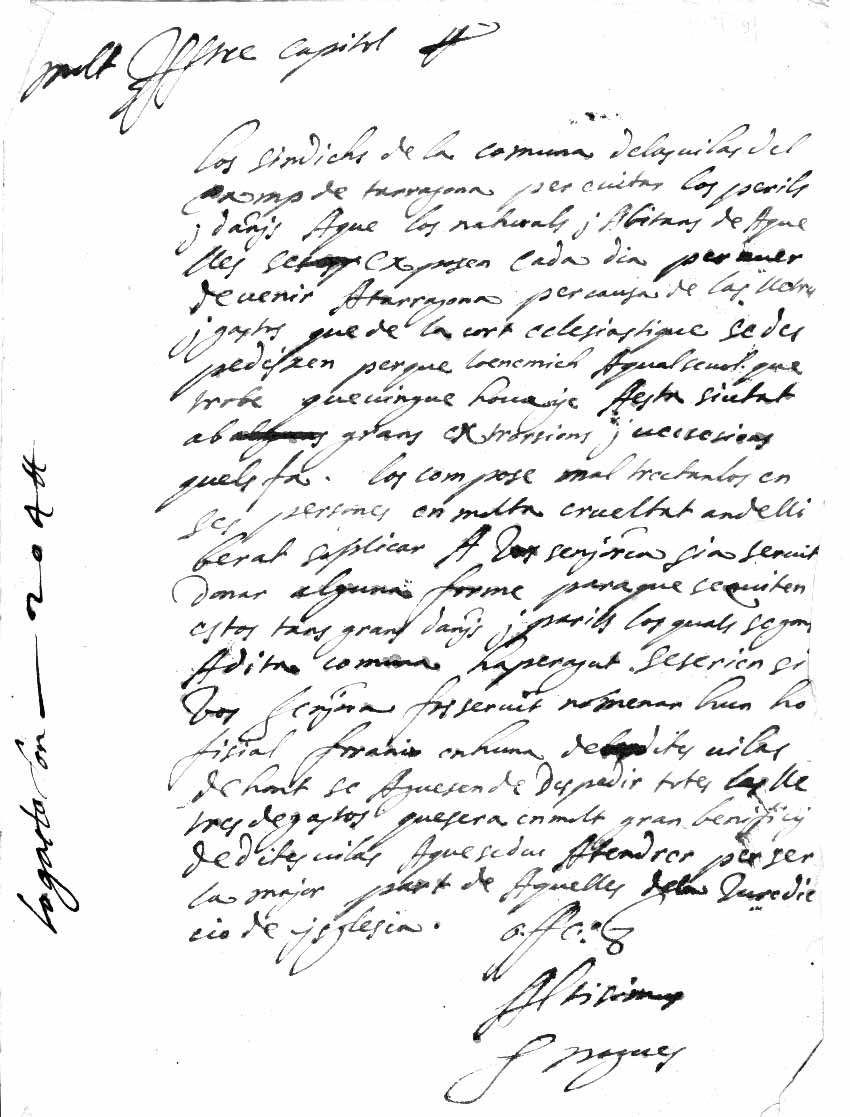 molt Illtre capitol
los sindichs de la comuna delas vilas del
Camp de tarragona per evitar los perills
j danjs Aque los naturals j Abitans de Aque
lles se exposen cada dia per aver
de venir Atarragona per causa de las lletres
j gastos que de la cort eclesiastique se des
pedixen perque loenemich Aqualsevol que
trobe que vingue ho vaje Aesta siutat
ab grans extrorsions j vecsesions
quels fa. los compose mal trectanlos en
ses persones en molta crueltat an delli
berat suplicar A Vos senjoria sia servit
donar alguna forme paraque se quiten
estos tans grans danjs j parills los quals segons
Adita comuna ha peragut seserien si
Vos senjoria fos servit nomenar hun ho
fisial forani en huna de dites vilas
de hont se Aguesen de Despedir totes las lle
tres de gastos que sera en molt gran benifisi
de dites vilas Aque se deu Atendrer per ser
la major part de Aquelles dela Juredic
cio de jsglesia.
Altisimus